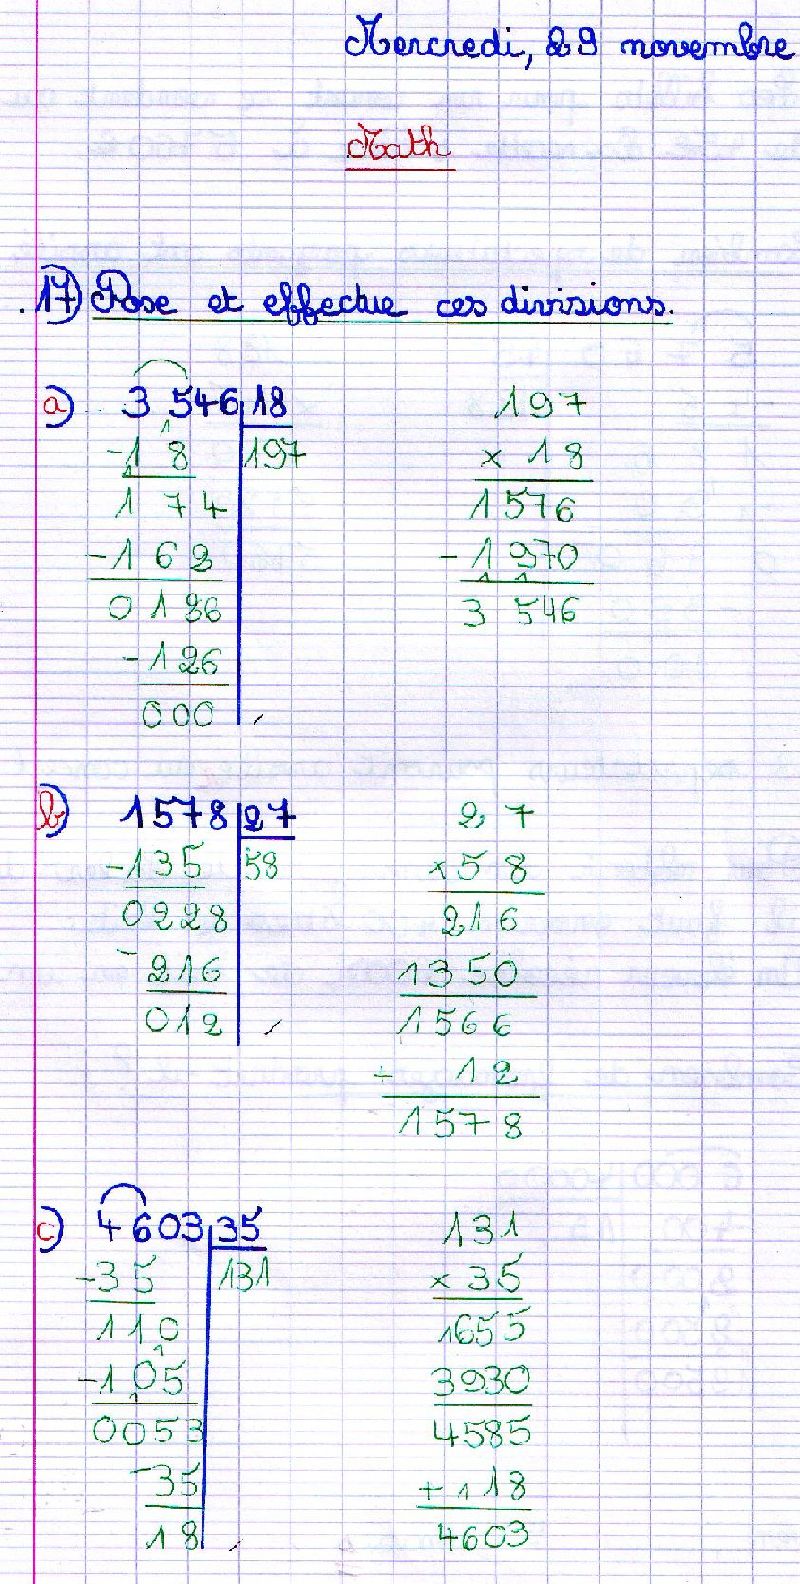 Mercredi, 29 novembre
Math
17) Pose et effectue ces divisions.
a) 3 546 18
- 1 8 197
1 74
- 1 62
0 126
- 126
000
197
x 18
1576
- 1970
3 546
b) 1578 27
- 135 58
0228
- 216
012
27
x 58
216
1350
1566
+ 12
1578
c) 4603 35
- 35 131
110
- 105
0053
- 35
18
131
x 35
1655
3930
4585
+ 18
4603